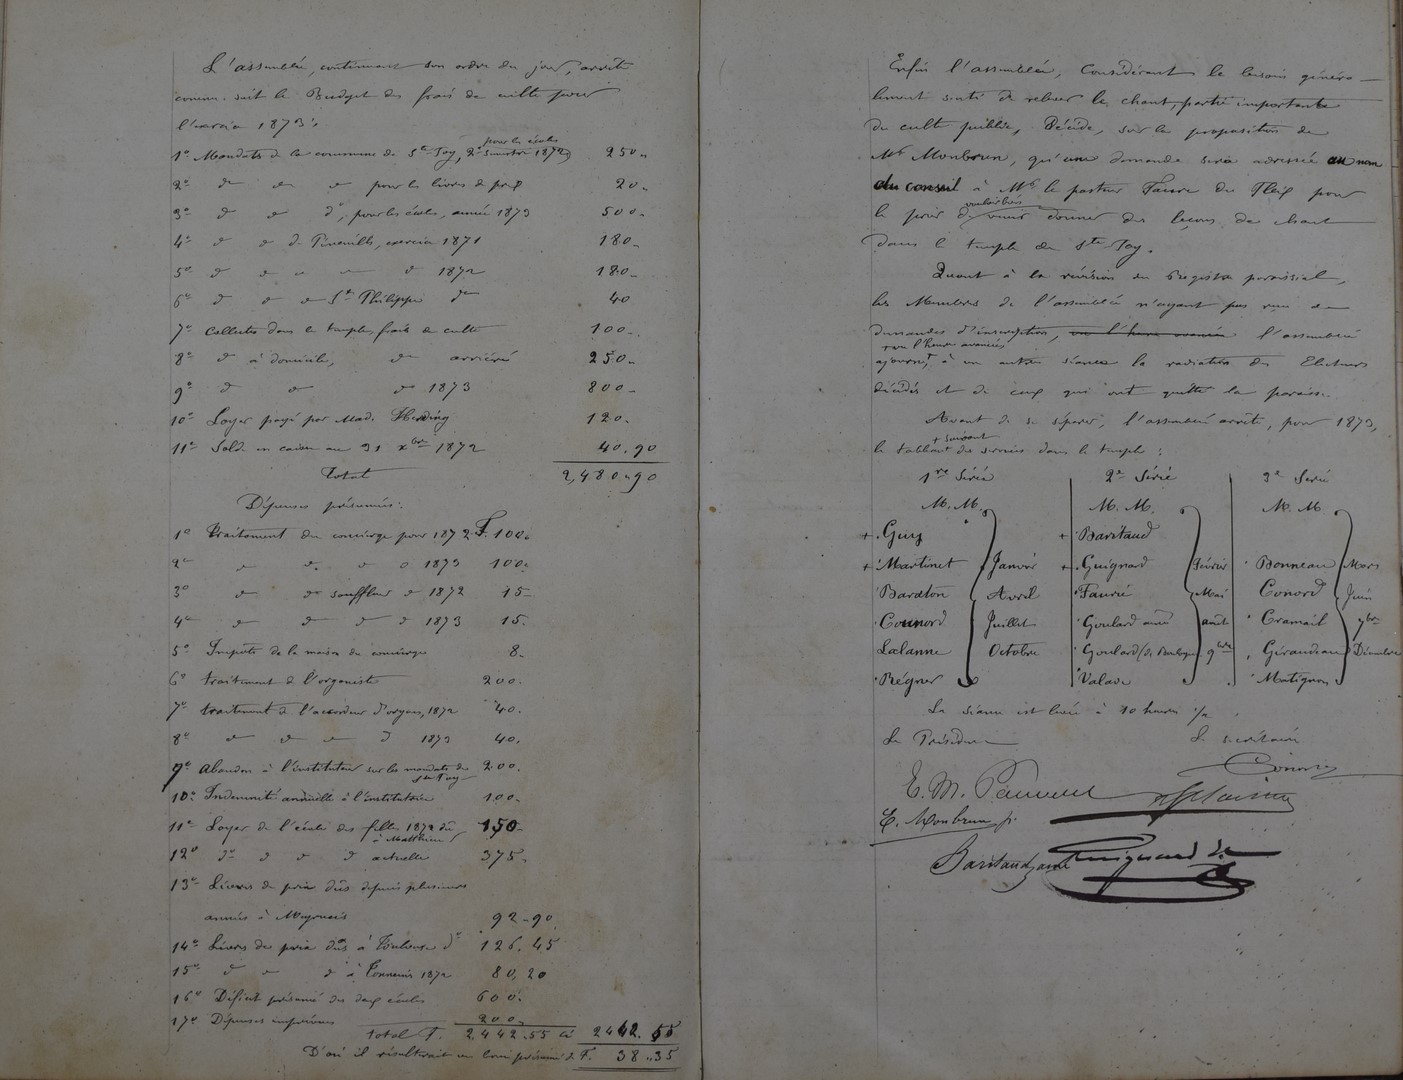 L'assemblée, continuant son ordre du jour, arrête
comme suit le Budget des frais de culte pour
l'exercice 1873:
1º Mandats de la commune de Ste Foy, 2e semestre 1872 250"
pour les écoles
2º dº dº dº pour les livres de prix 20"
3º dº dº dº, pour les écoles, année 1873 500"
4º dº dº de Pineuilh, exercice 1871 180"
5º dº dº dº dº dº 1872 180"
6º dº dº dº St Philippe dº 40
7º Collectes dans le temple, frais de culte 100"
8º dº à domicile, dº arriéré 250"
9º dº dº dº 1873 800"
10º Loyer payé par Mad. Harding 120"
11º Solde en caisse au 31 xbre 1872 40.90
Total 2,480"90
Dépenses présumées:
1º Traitement du concierge pour 1872 F. 100"
2º dº dº dº dº 1873 100"
3º dº du souffleur dº 1872 15"
4º dº dº dº dº 1873 15"
5º Impôts de la maison du concierge 8"
6º traitement de l'organiste 200"
7º traitement de l'accordeur d'orgues, 1872 40"
8º dº dº dº dº 1873 40"
9º Abandon à l'instituteur sur les mandats de 200"
Ste Foy
10º Indemnité annuelle à l'institutrice 100"
11º Loyer de l'école des filles 1872 dû 150"
à Matthieu
12º dº dº dº dº actuelle 375"
13º Livres de prix dûs depuis plusieurs
années à Meyrueis 92"90
14º Livres de prix dûs à Toulouse dº 126.45
15º dº dº dº à Tonneins 1872 80,20
16º Déficit présumé des deux écoles 600"
17º Dépenses imprévues 200"
total F. 2,442.55 ci 2442.55
D'où il résulterait un boni présumé de F. 38"35
Enfin l'assemblée, considérant le besoin généra-
lement senti de relever le chant, partie importante
du culte public, Décide, sur la proposition de
Mr Monbrun, qu'une demande sera adressée au nom
du conseil à Mr le pasteur Faure du Fleix pour
vouloir bien
le prier de venir donner des leçons de chant
dans le temple de Ste Foy.
Quant à la révision du Registre paroissial,
les Membres de l'assemblée n'ayant pas reçu de
demandes d'inscription, vu l'heure avancée l'assemblée
vu l'heure avancée
ajourne à une autre séance la radiation des Electeurs
décédés et de ceux qui ont quitté la paroisse.
Avant de se séparer, l'assemblée arrête, pour 1873,
+ suivant
le tableau des services dans le temple:
1re Série 2e Série 3e Série
M.M. M.M. M.M.
+ Guy + Baritaud
+ Martinet Janvier + Guignard Février Bonneau Mars
Baraton Avril Faurie Mai Conord Juin
Counord Juillet Goulard ainé août Cramail 7bre
Lalanne Octobre Goulard (de Boulogne) 9bre Géraudeau Décembre
Régner Valade Matignon
La séance est levée à 10 heures 1/2
Le Président Le secrétaire
Conord
E. Monbrun p.
Baritaud jeune Guignard